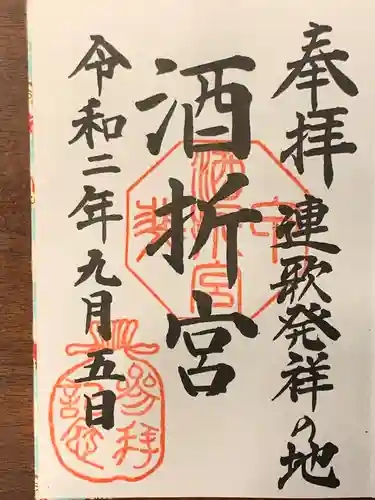 奉拝
連歌発祥の地
酒折宮
令和二年九月五日
酒折宮
参拝
記念